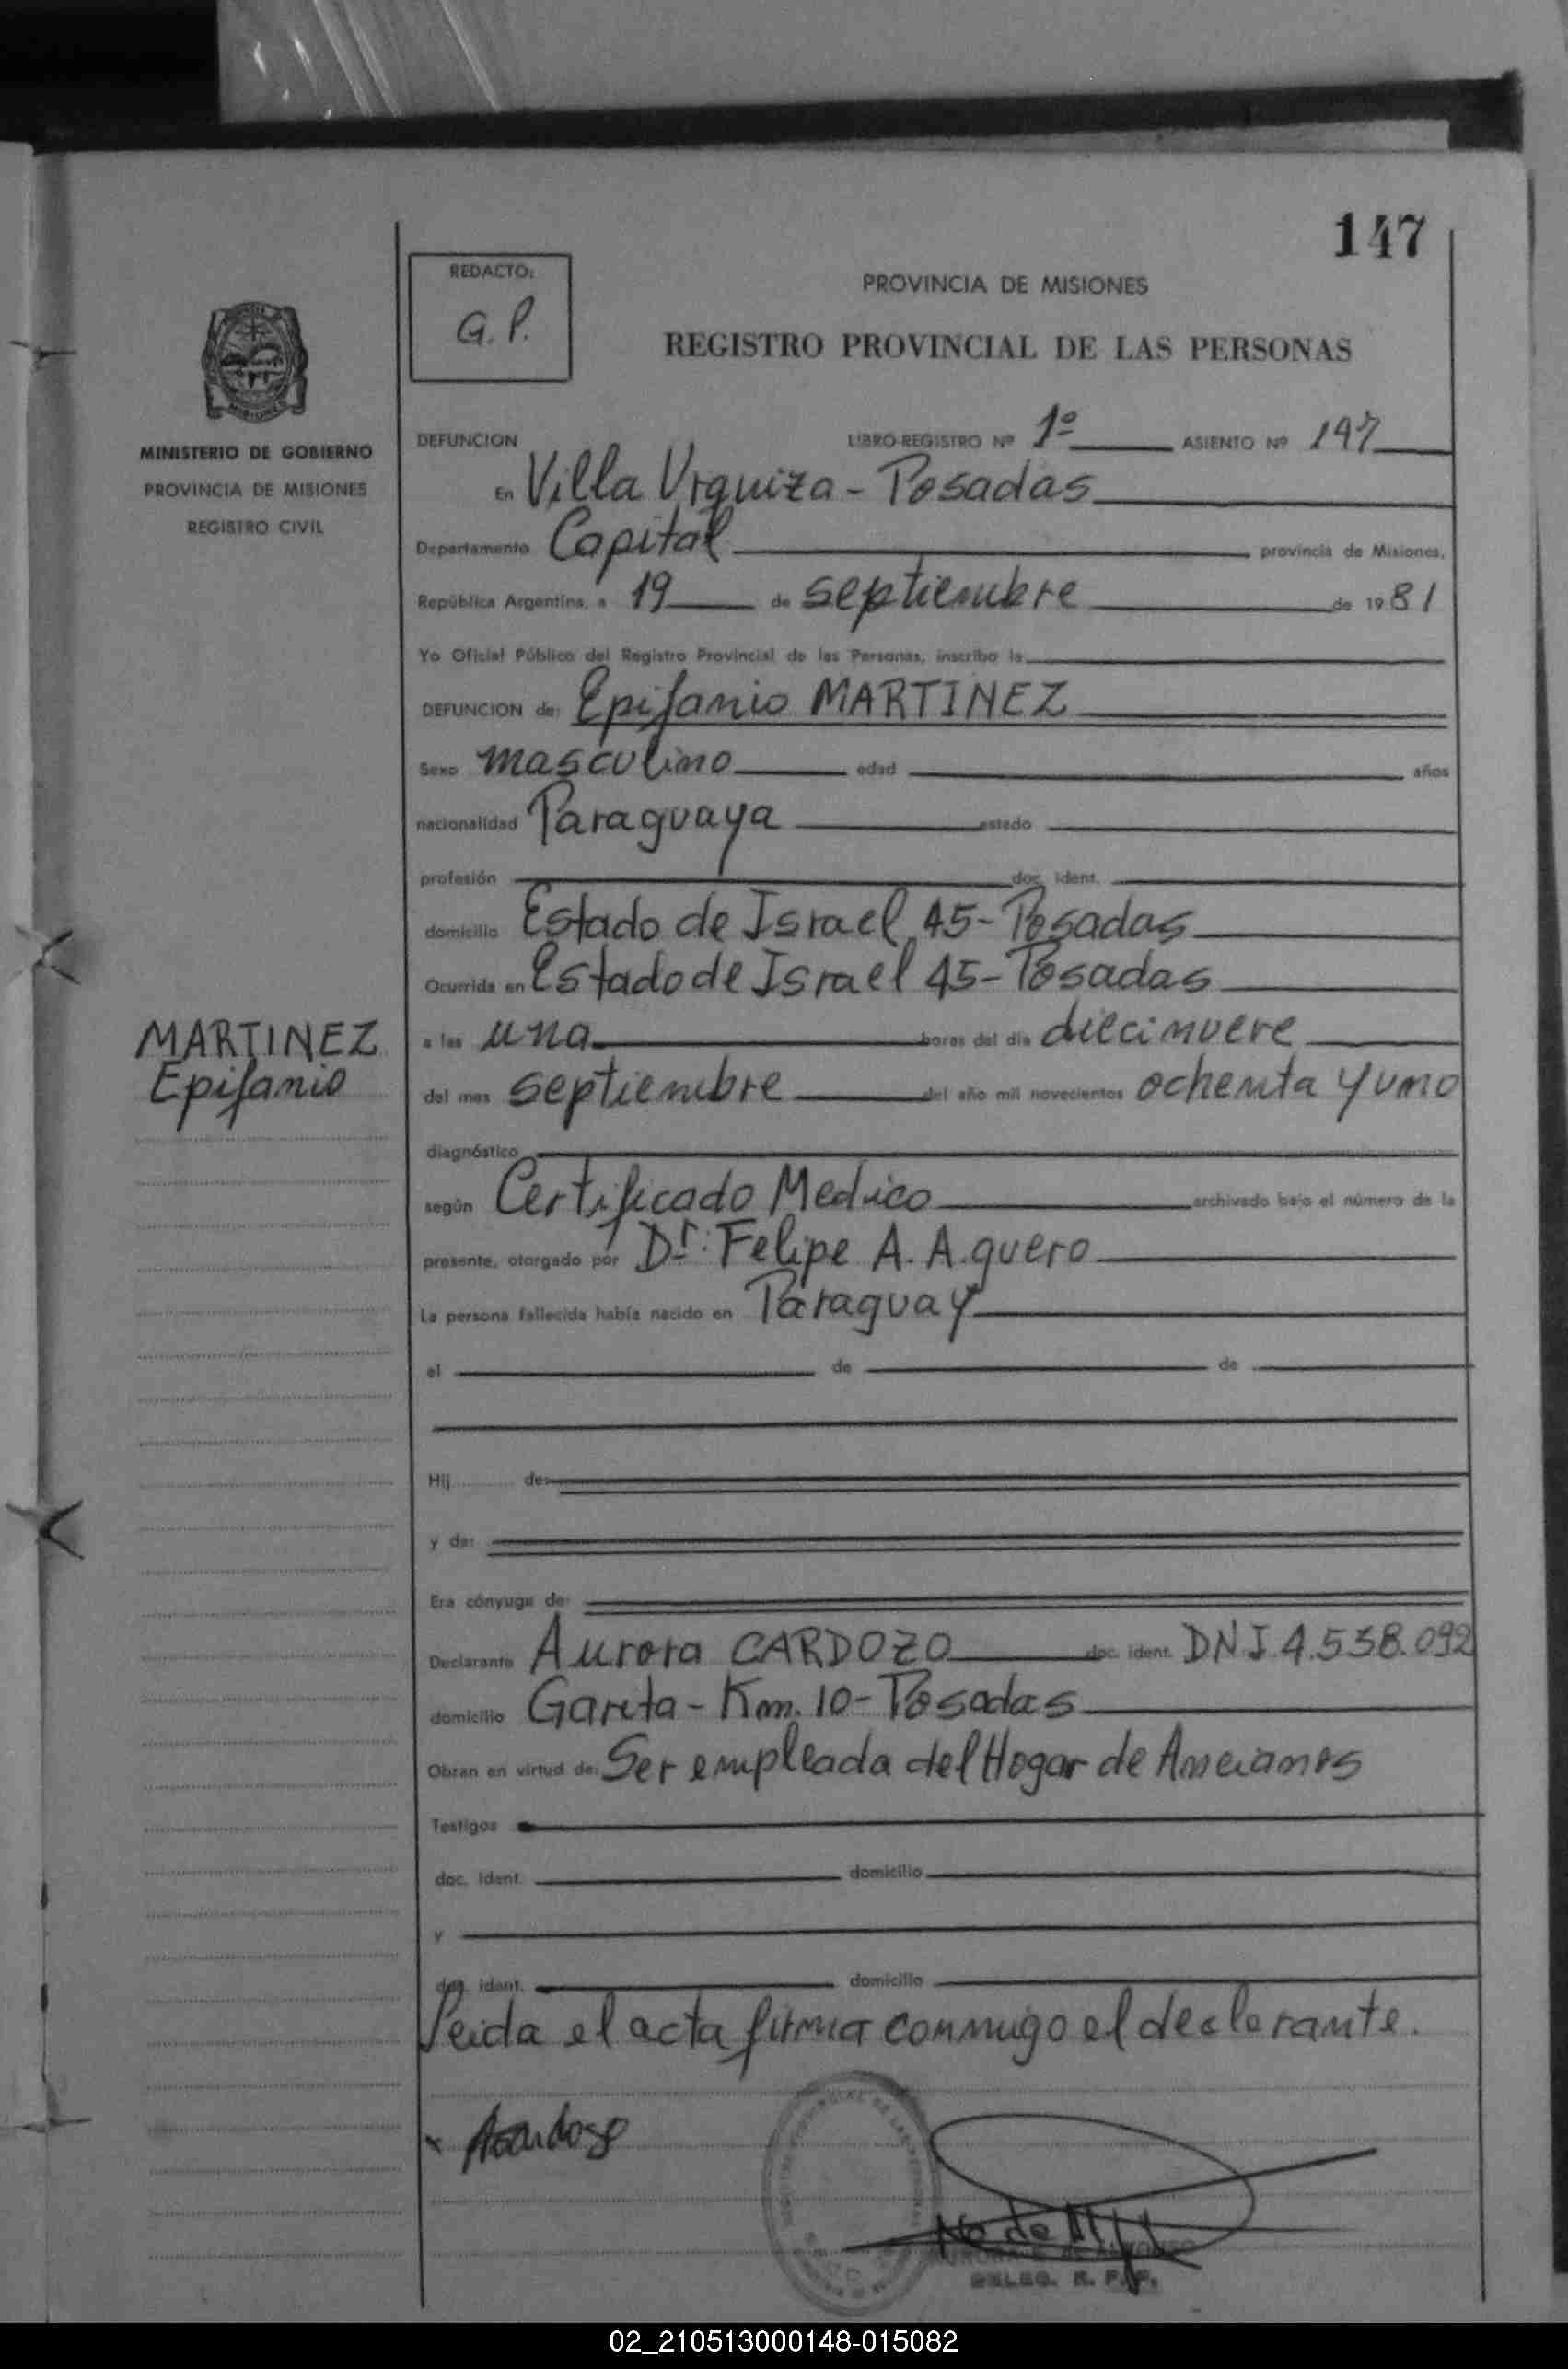 147
REDACTO:
G. P.
PROVINCIA DE MISIONES
REGISTRO PROVINCIAL DE LAS PERSONAS
MISIONES
MINISTERIO DE GOBIERNO
PROVINCIA DE MISIONES
REGISTRO CIVIL
DEFUNCION LIBRO-REGISTRO Nº 1º ASIENTO Nº 147
En Villa Urquiza - Posadas
Departamento Capital provincia de Misiones,
República Argentina, a 19 de septiembre de 19 81
Yo Oficial Público del Registro Provincial de las Personas, inscribo la
DEFUNCION de: Epifanio MARTINEZ
Sexo masculino edad años
nacionalidad Paraguaya estado
profesión doc. ident.
domicilio Estado de Israel 45 - Posadas
Ocurrida en Estado de Israel 45 - Posadas
a las una horas del día diecinueve
del mes septiembre del año mil novecientos ochenta y uno
MARTINEZ
Epifanio
diagnóstico
según Certificado Medico archivado bajo el número de la
presente, otorgado por Dr: Felipe A. Aguero
La persona fallecida había nacido en Paraguay
el de de
Hij de:
y de:
Era cónyuge de:
Declarante Aurora CARDOZO doc. ident. DNI. 4.538.092
domicilio Garita - Km. 10 - Posadas
Obran en virtud de: Ser empleada del Hogar de Ancianos
Testigos
doc. ident. domicilio
y
doc. ident. domicilio
Leida el acta firma conmigo el declarante.
x ACardozo
DELEG. R. P. P.
02_210513000148-015082